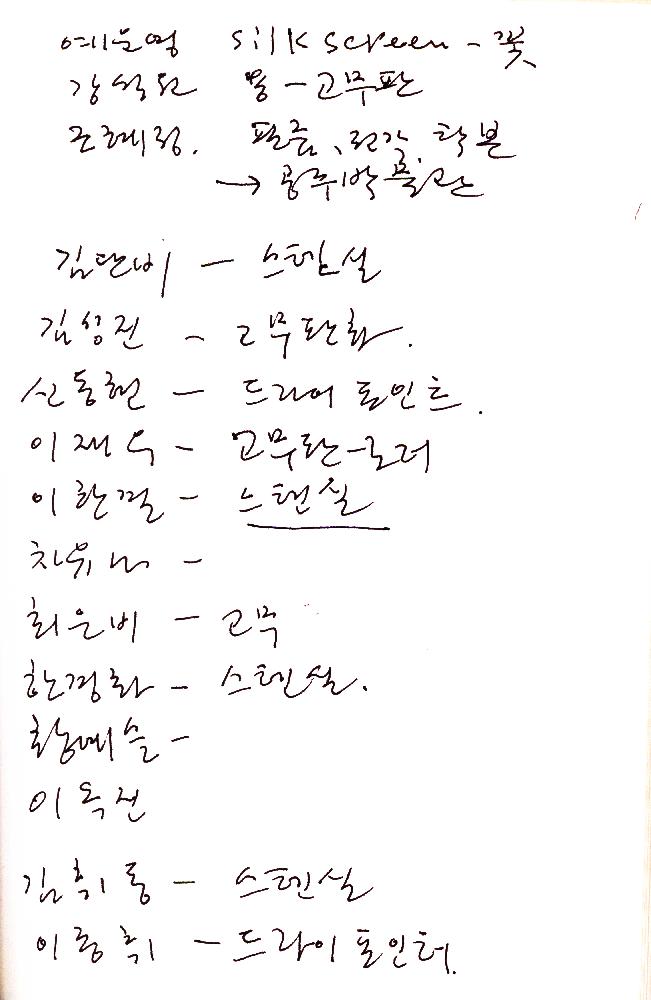 예 silk screen - 꽃
강 용 - 고무판
조혜정. 판즙、전각、탁본
→ 공주박물관
김단비 - 스텐실
김성진 - 고무판화.
신동현 - 드라이포인트.
이재 - 고무판-롤러
이한결 - 스텐실
차유
최은비 - 고무
한경화 - 스텐실.
황예슬 -
이옥선
김휘동 - 스텐실
이종휘 - 드라이포인터.